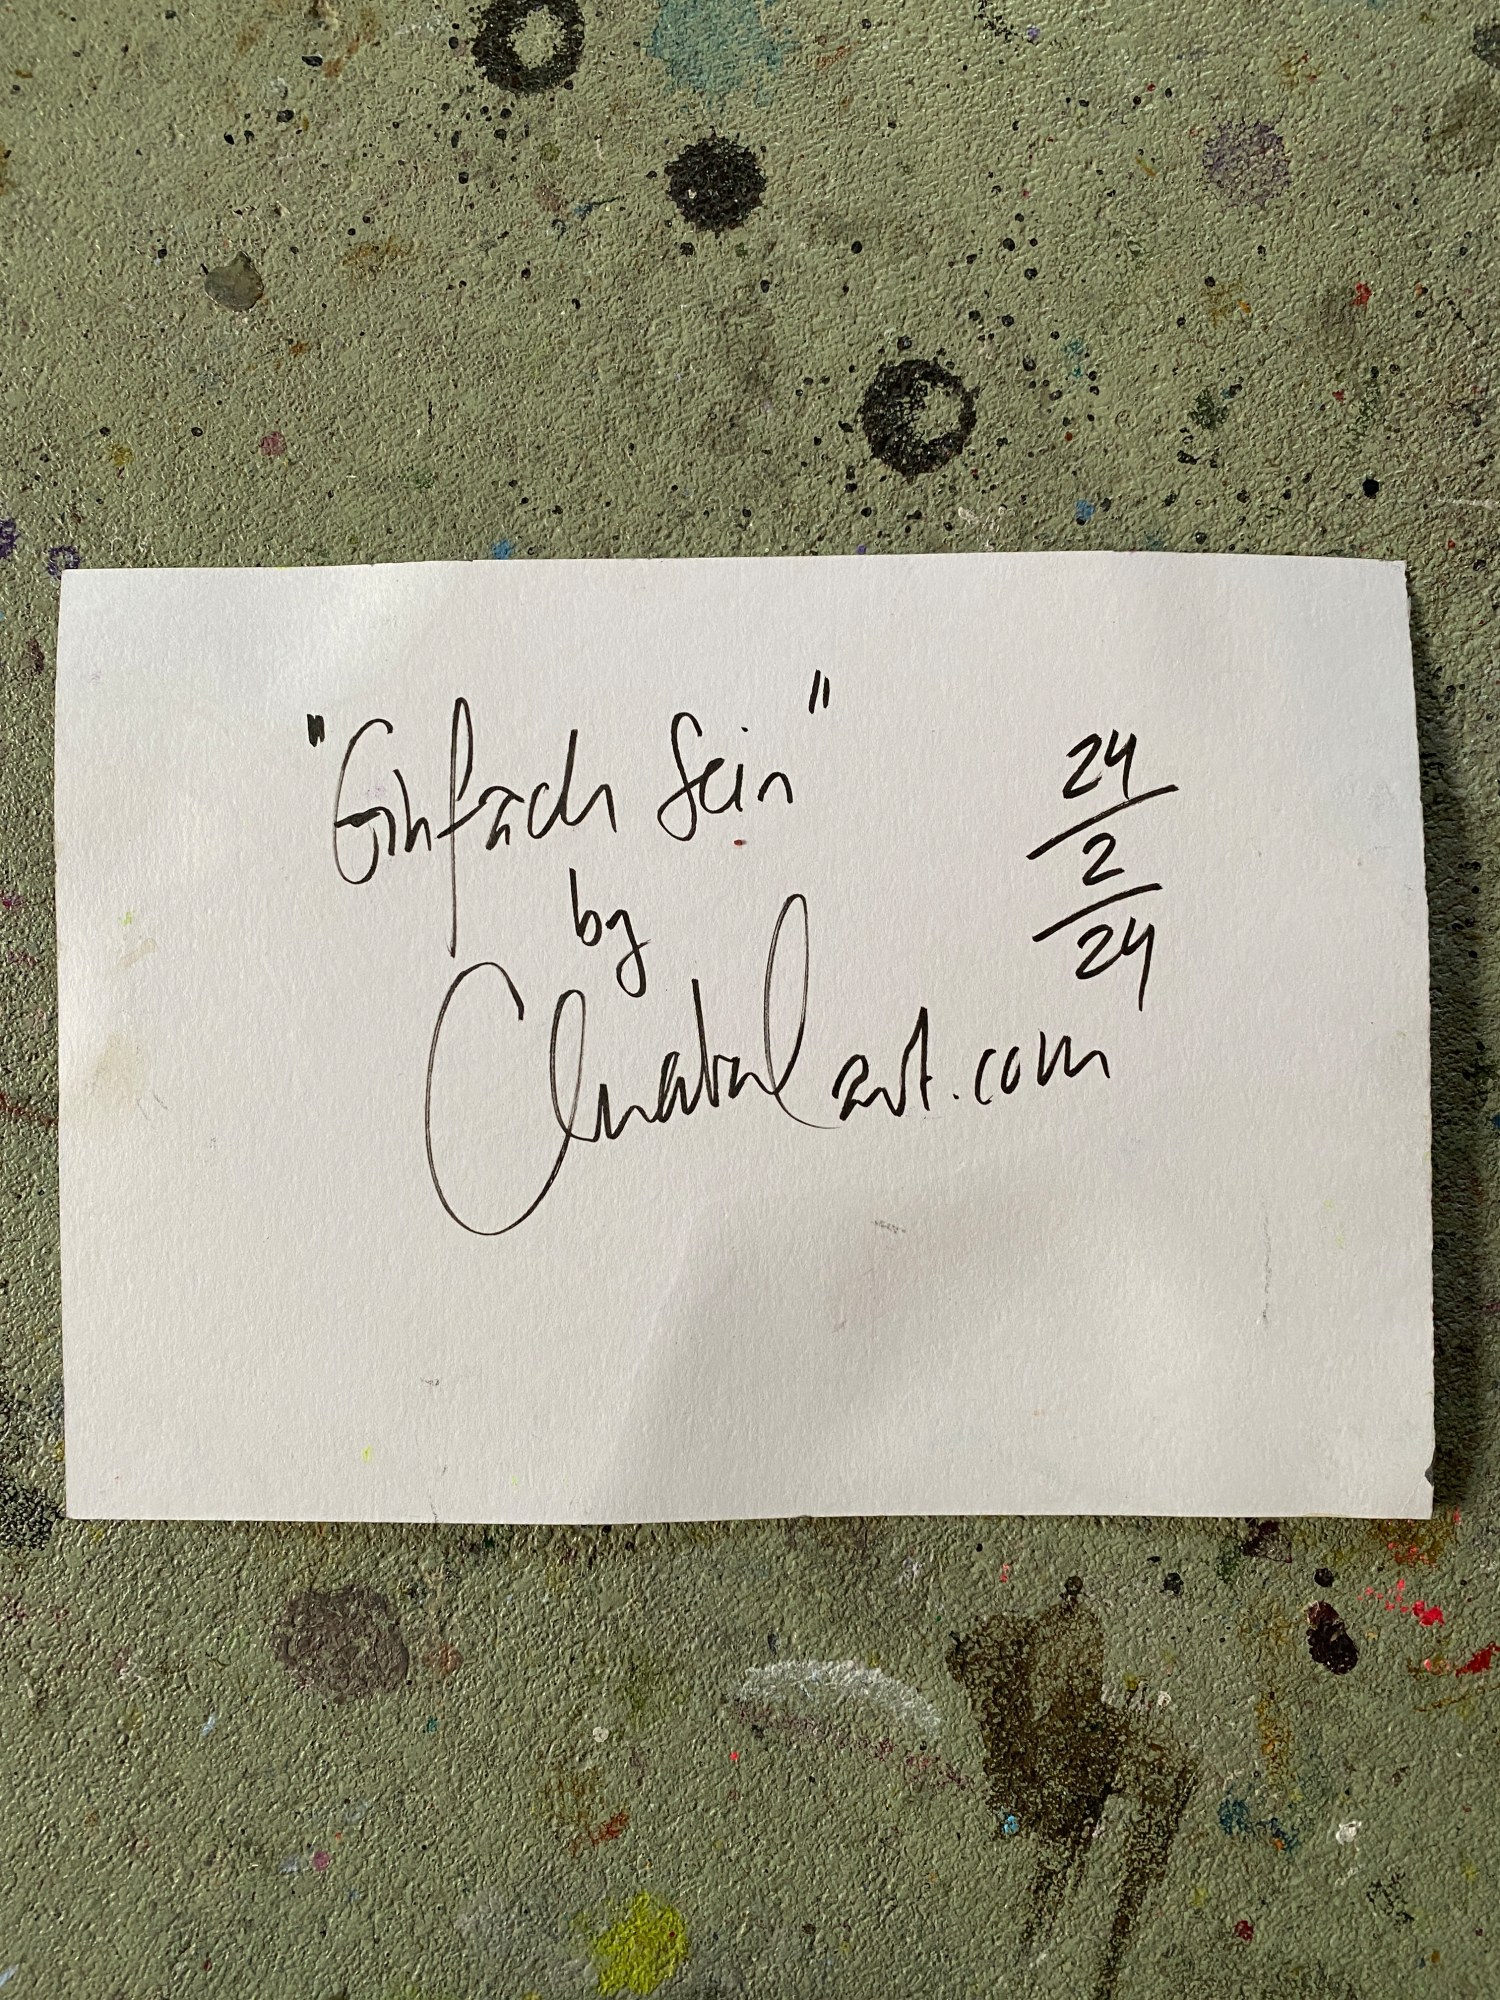 "Einfach Sein"
by
Chabalart.com
24
2
24